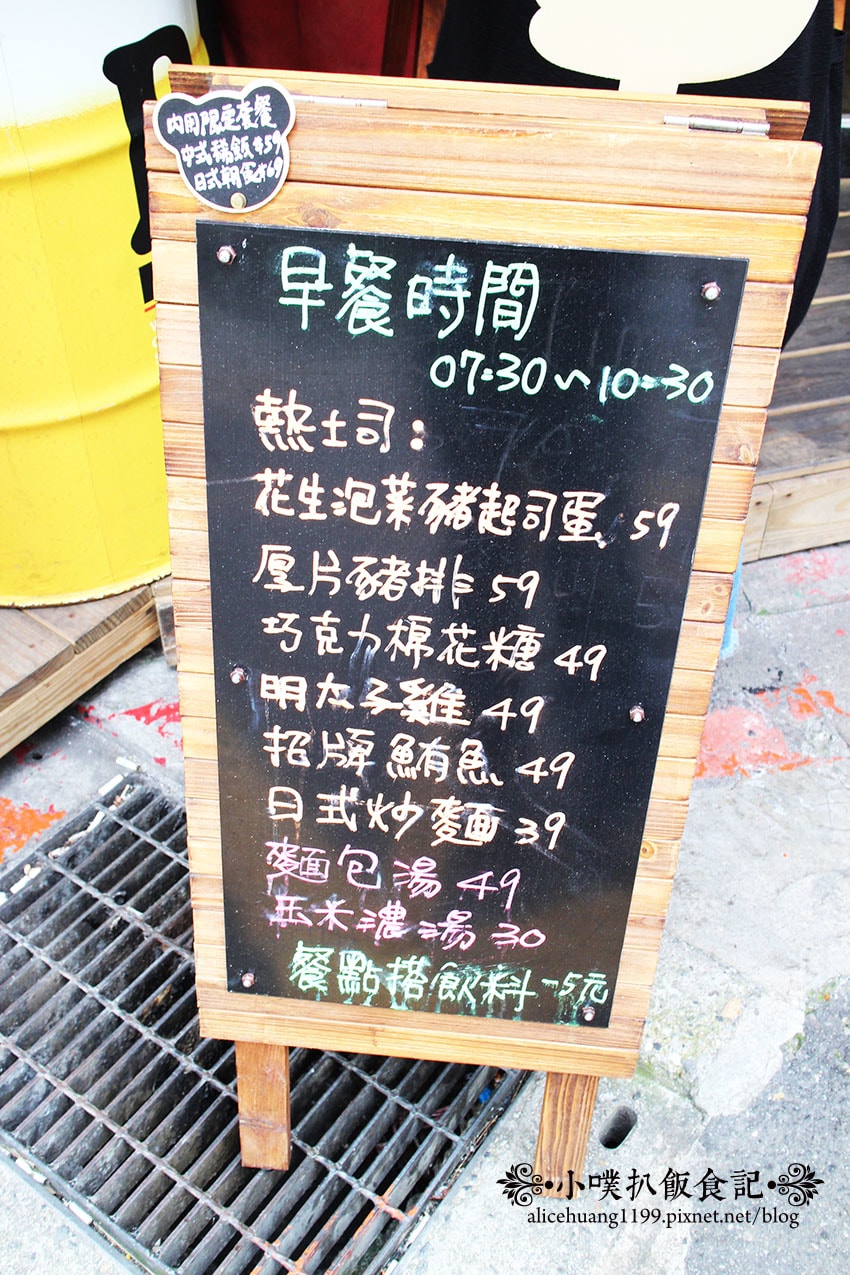 內用限定套餐
中式稀飯$59
日式朝食$69
早餐時間
07:30~10:30
熱土司:
花生泡菜豬起司蛋 59
厚片豬排 59
巧克力棉花糖 49
明太子雞 49
招牌鮪魚 49
日式炒麵 39
麵包湯 49
玉米濃湯 30
餐點搭飲料-5元
•小噗扒飯食記•
alicehuang1199.pixnet.net/blog